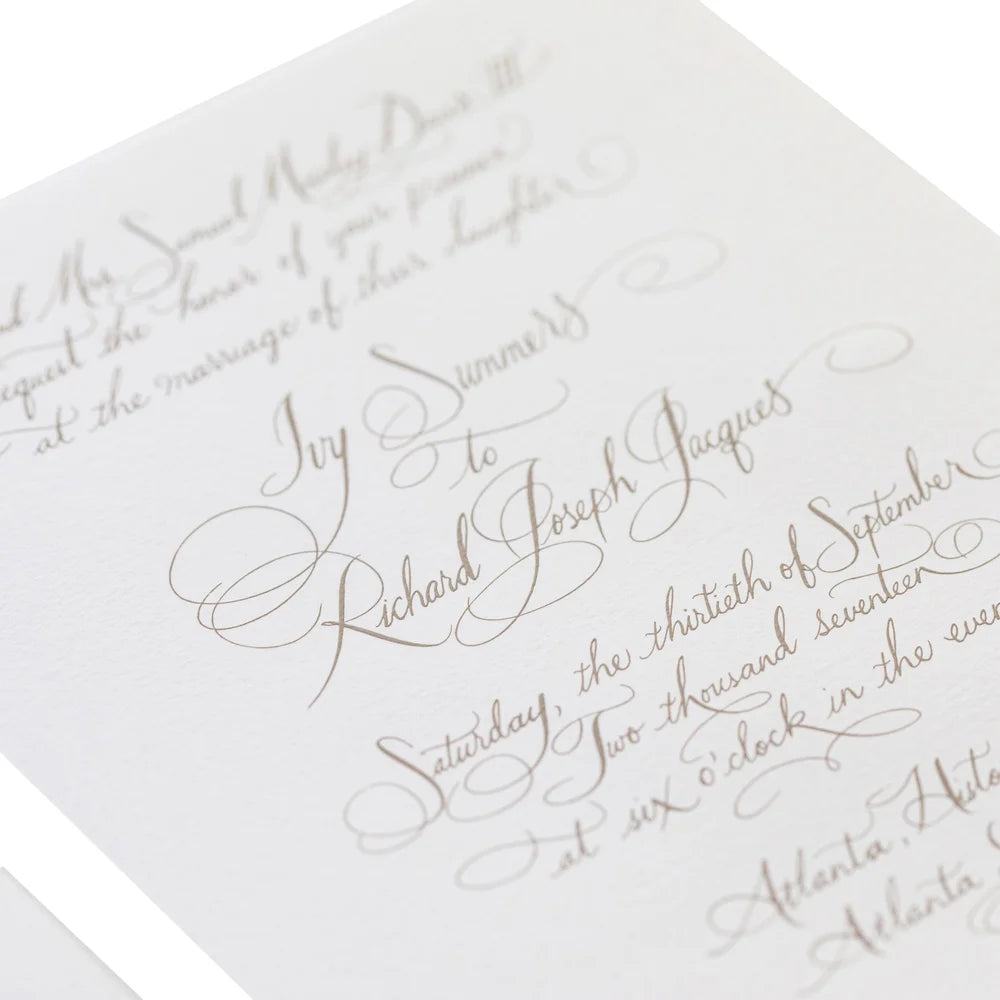 Mrs. Samuel III
request the honor of your
at the marriage of their daughter
Ivy Summers
to
Richard Joseph Jacques
Saturday, the thirtieth of September
Two thousand seventeen
at six o'clock in the
Atlanta,
Atlanta